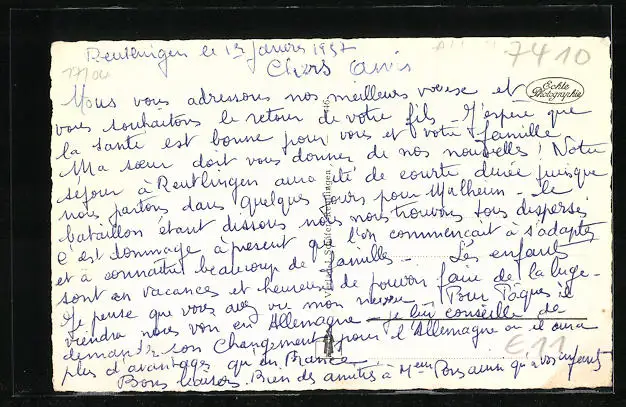 Reutlingen le 1er Janvier 1957
7410
Chers Amis
Echte Photographie
Nous vous adressons nos meilleurs voeux et
vous souhaitons le retour de votre fils - J'espère que
la santé est bonne pour vous et votre famille.
Ma sœur doit vous donner de nos nouvelles! Notre
séjour à Reutlingen aura été de courte durée puisque
nous partons dans quelques jours pour Malheim - le
bataillon étant dissous nous nous trouvons tous dispersés
C'est dommage à présent que l'on commençait à s'adapter
et à connaître beaucoup de familles - Les enfants
sont en vacances et heureux de pouvoir faire de la luge -
Je pense que vous avez vu mon neveu. Pour Pâques il
viendra nous voir en Allemagne - je lui conseille de
demander son changement pour l'Allemagne où il aura
plus d'avantages qu'en France.
€11
Bons baisers. Bien des amitiés à Meur ainsi qu'à vos enfants